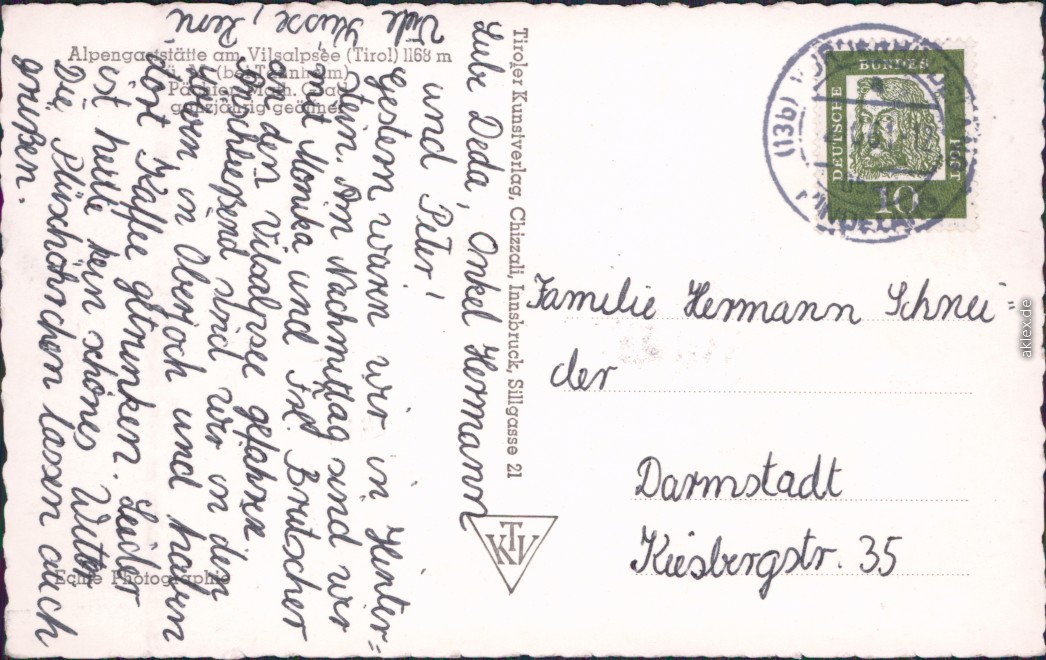 Alpengaststätte am Vilsalpsee (Tirol) 1168 m
(bei Tannheim)
Pächter Math.
ganzjährig geöffnet
Liebe Deda, Onkel Hermann
und Peter!
Gestern waren wir in Hinter=
stein. Am Nachmittag sind wir
mit Monika und Frl. Brutscher
an den Vilsalpsee gefahren.
Anschließend sind wir in den
Adlern in Oberjoch und haben
dort Kaffee getrunken. Leider
ist heute kein schönes Wetter.
Die Plüschöhrchen lassen auch
grüßen.
Viele Küsse,
Echte Photographie
Tiroler Kunstverlag, Chizzali, Innsbruck, Sillgasse 21
KTV
(13b)
DEUTSCHE
BUNDES
POST
10
Familie Hermann Schnei=
der
Darmstadt
Kiesbergstr. 35
aklex.de